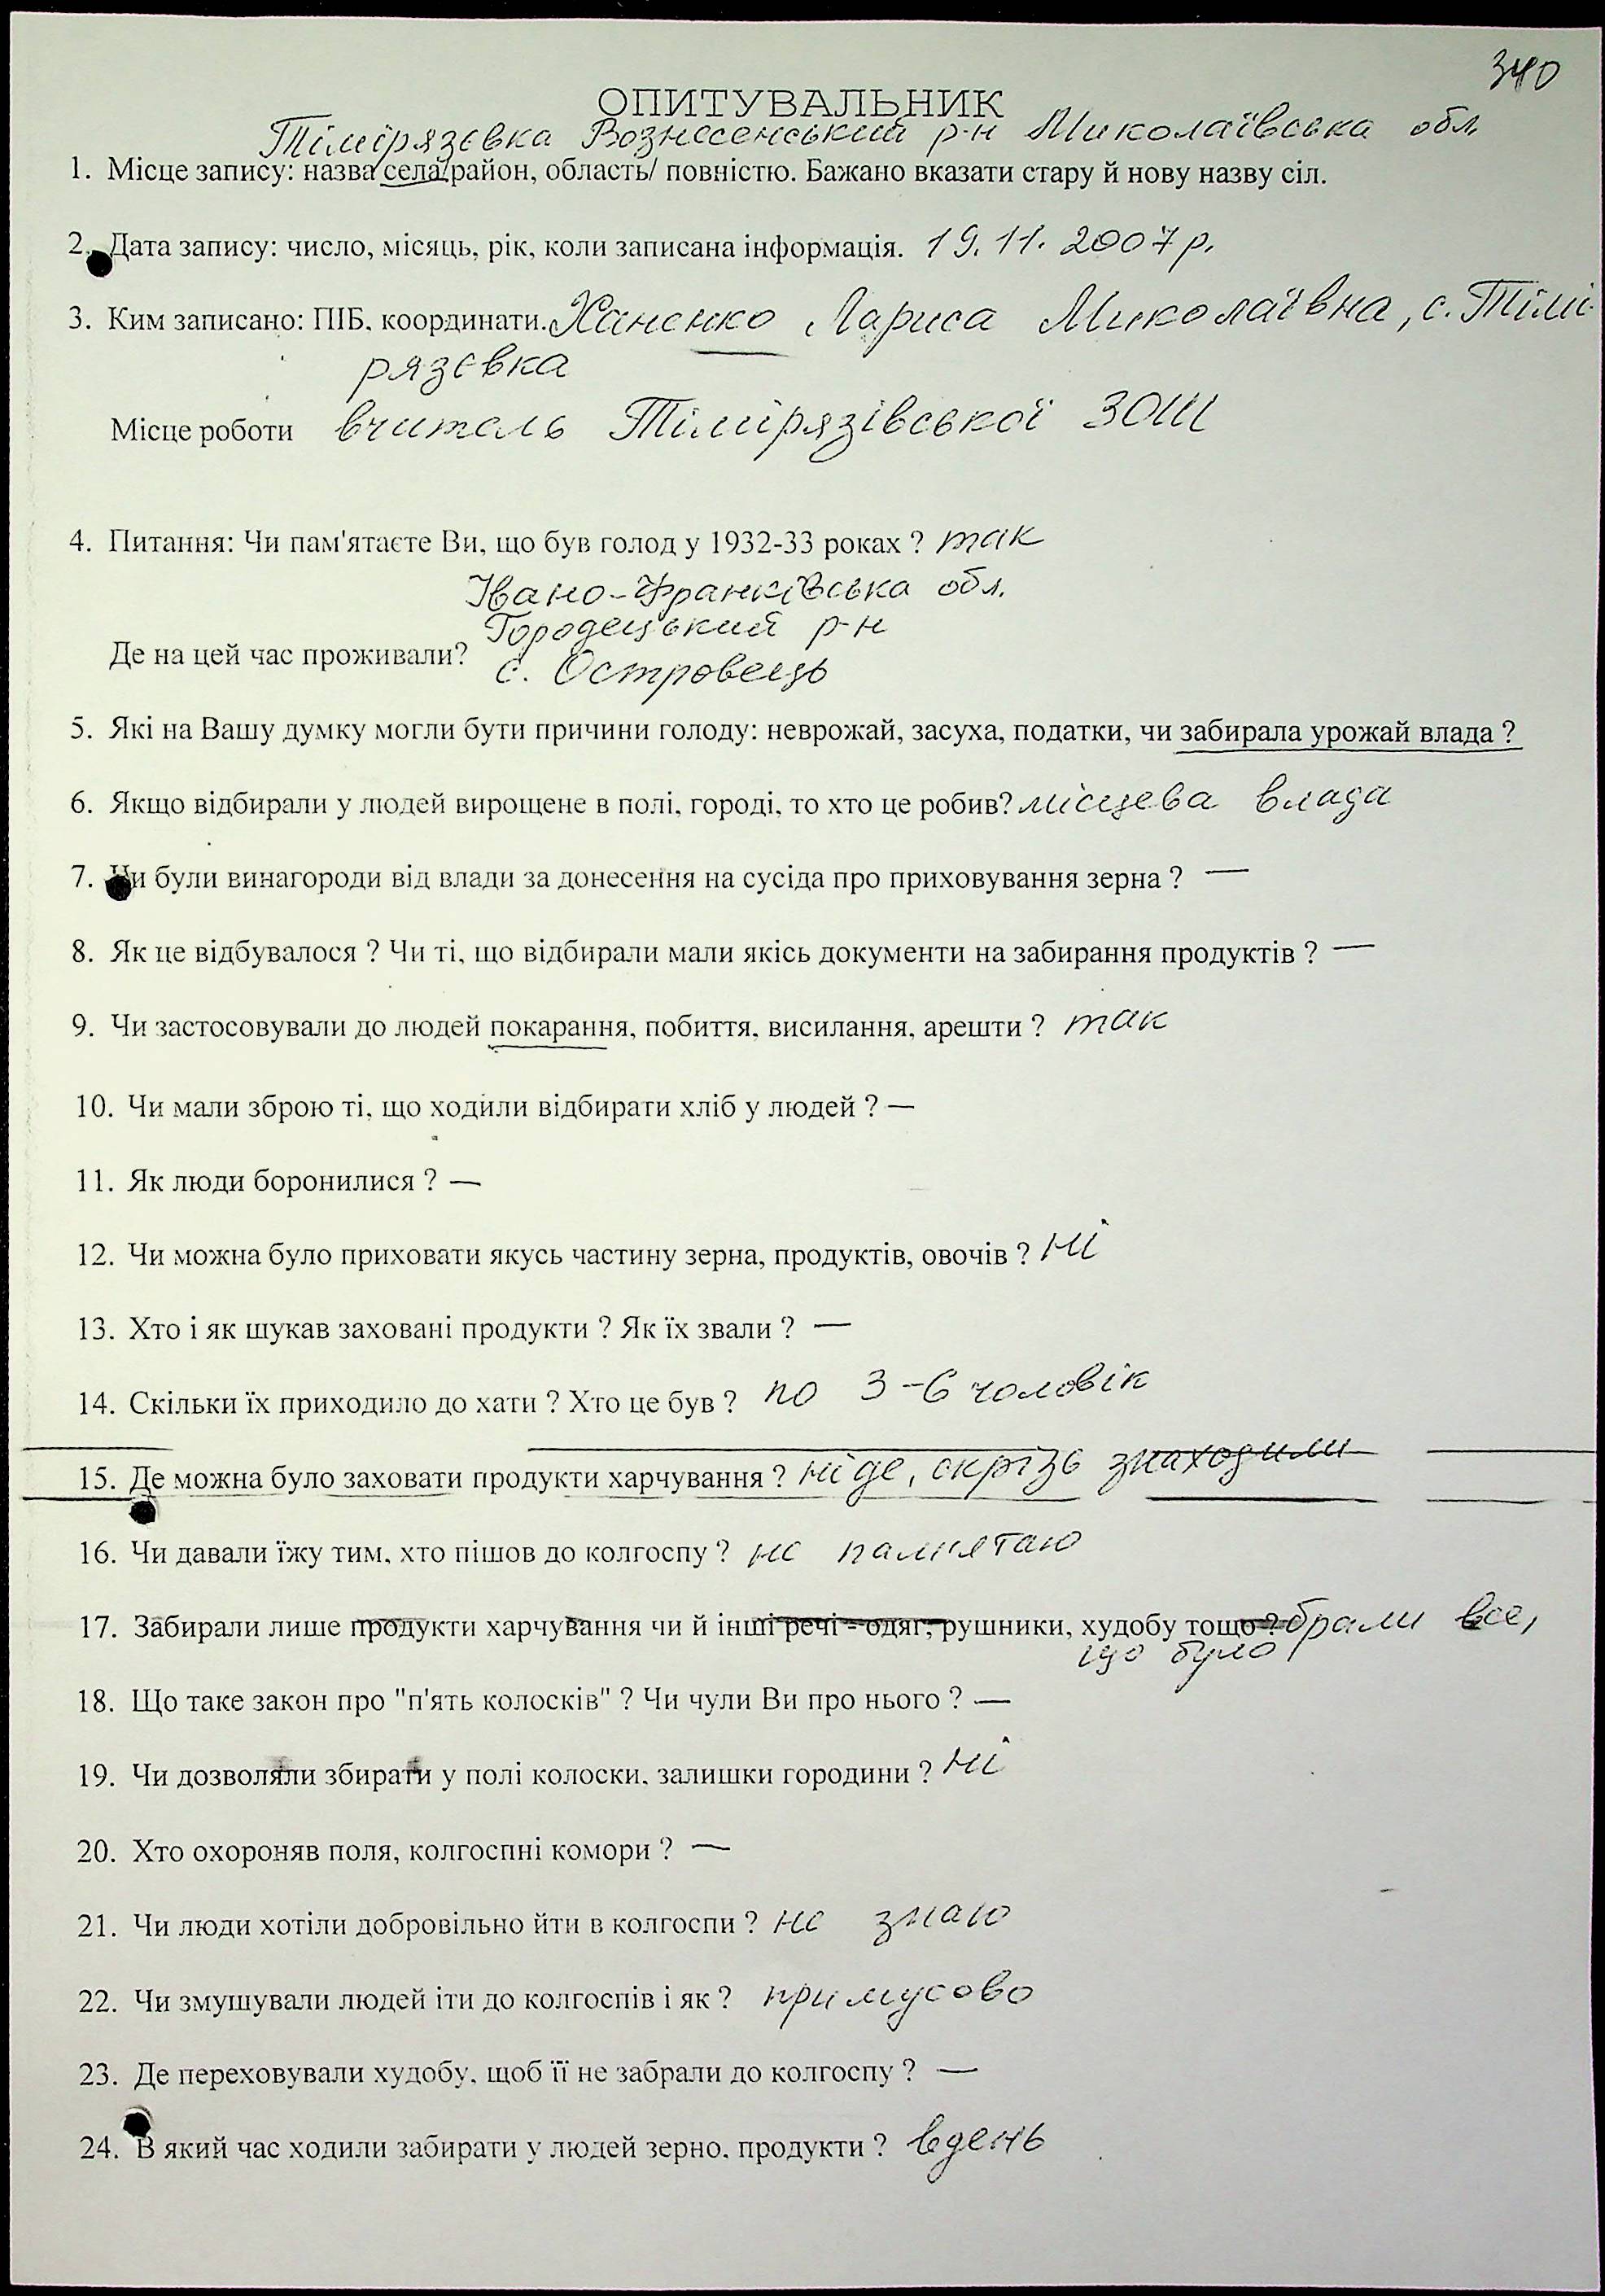 340
ОПИТУВАЛЬНИК
Тімірязєвка Вознесенський р-н Миколаївська обл.
1. Місце запису: назва села/район, область/ повністю. Бажано вказати стару й нову назву сіл.
2. Дата запису: число, місяць, рік, коли записана інформація. 19.11.2007 р.
3. Ким записано: ПІБ, координати. Ханенко Лариса Миколаївна, с. Тімі-
рязєвка
Місце роботи вчитель Тімірязівської ЗОШ
4. Питання: Чи пам'ятаєте Ви, що був голод у 1932-33 роках ? так
Івано-Франківська обл.
Городецький р-н
Де на цей час проживали? с. Островець
5. Які на Вашу думку могли бути причини голоду: неврожай, засуха, податки, чи забирала урожай влада ?
6. Якщо відбирали у людей вирощене в полі, городі, то хто це робив? місцева влада
7. Чи були винагороди від влади за донесення на сусіда про приховування зерна ? —
8. Як це відбувалося ? Чи ті, що відбирали мали якісь документи на забирання продуктів ? —
9. Чи застосовували до людей покарання, побиття, висилання, арешти ? так
10. Чи мали зброю ті, що ходили відбирати хліб у людей ? —
11. Як люди боронилися ? —
12. Чи можна було приховати якусь частину зерна, продуктів, овочів ? ні
13. Хто і як шукав заховані продукти ? Як їх звали ? —
14. Скільки їх приходило до хати ? Хто це був ? по 3-6 чоловік
15. Де можна було заховати продукти харчування ? ніде, скрізь знаходили
16. Чи давали їжу тим, хто пішов до колгоспу ? не памнятаю
17. Забирали лише продукти харчування чи й інші речі - одяг, рушники, худобу тощо ? брали все,
що було
18. Що таке закон про "п'ять колосків" ? Чи чули Ви про нього ? —
19. Чи дозволяли збирати у полі колоски, залишки городини ? ні
20. Хто охороняв поля, колгоспні комори ? —
21. Чи люди хотіли добровільно йти в колгоспи ? не знаю
22. Чи змушували людей іти до колгоспів і як ? примусово
23. Де переховували худобу, щоб її не забрали до колгоспу ? —
24. В який час ходили забирати у людей зерно, продукти ? вдень